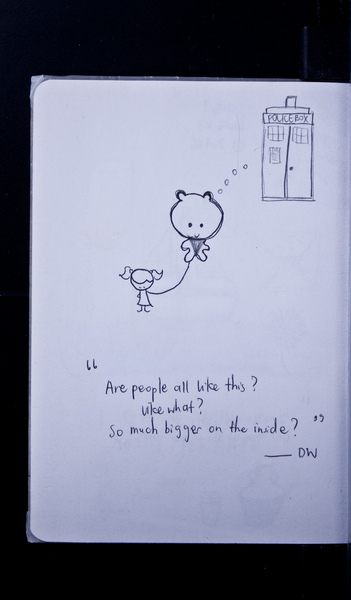 POLICE BOX
“
Are people all like this?
like what?
So much bigger on the inside? ”
— DW